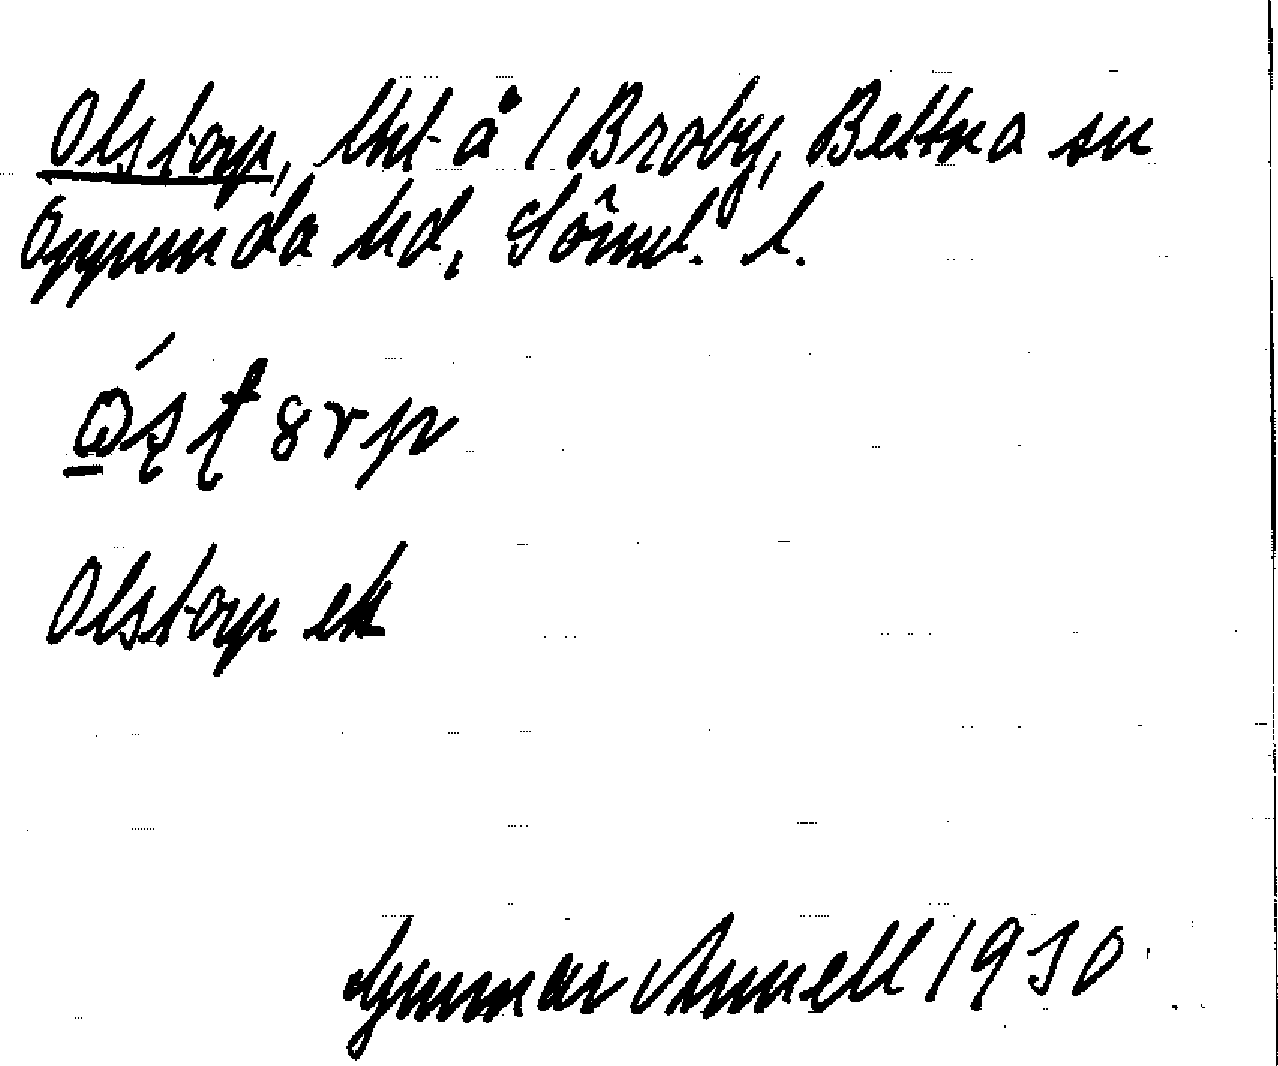 Olstorp, lht å 1 Broby, Bettna sn
Oppunda hd, Söml. l.
Olstorp ek
Gunnar Arnell 1930